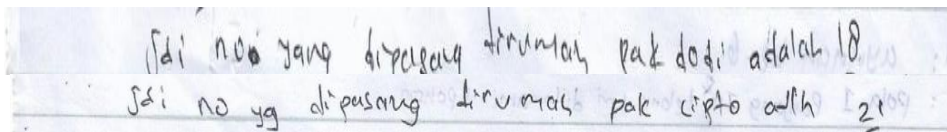 Jdi no yang dipasang dirumah pak dodi adalah 18
Jdi no yg dipasang dirumah pak cipto adlh 21